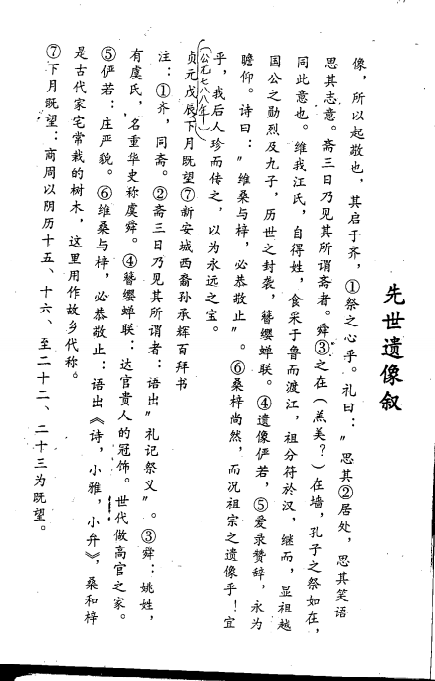 先世遗像叙
像，所以起敬也，其启于齐，①祭之心乎。礼曰：〃思其②居处，思其笑语
思其志意。斋三日乃见其所谓斋者。舜③之在（羔美？）在墙，孔子之祭如在，
同此意也。维我江氏，自得姓，食采于鲁而渡江，祖分符於汉，继而，显祖越
国公之勋烈及九子，历世之封袭，簪缨蝉联。④遗像俨若，⑤爱录赞辞，永为
瞻仰。诗曰：〃维桑与梓，必恭敬止〃。⑥桑梓尚然，而况祖宗之遗像乎！宜
乎，我后人珍而传之，以为永远之宝。
（公元七八八年）
贞元戊辰下月既望⑦新安城西裔孙承辉百拜书
注：①齐，同斋。②斋三日乃见其所谓者：语出〃礼记祭义〃。③舜：姚姓，
有虞氏，名重华史称虞舜。④簪缨蝉联：达官贵人的冠饰。世代做高官之家。
⑤俨若：庄严貌。⑥维桑与梓，必恭敬止：语出《诗，小雅，小弁》，桑和梓
是古代家宅常栽的树木，这里用作故乡代称。
⑦下月既望：商周以阴历十五、十六、至二十二、二十三为既望。